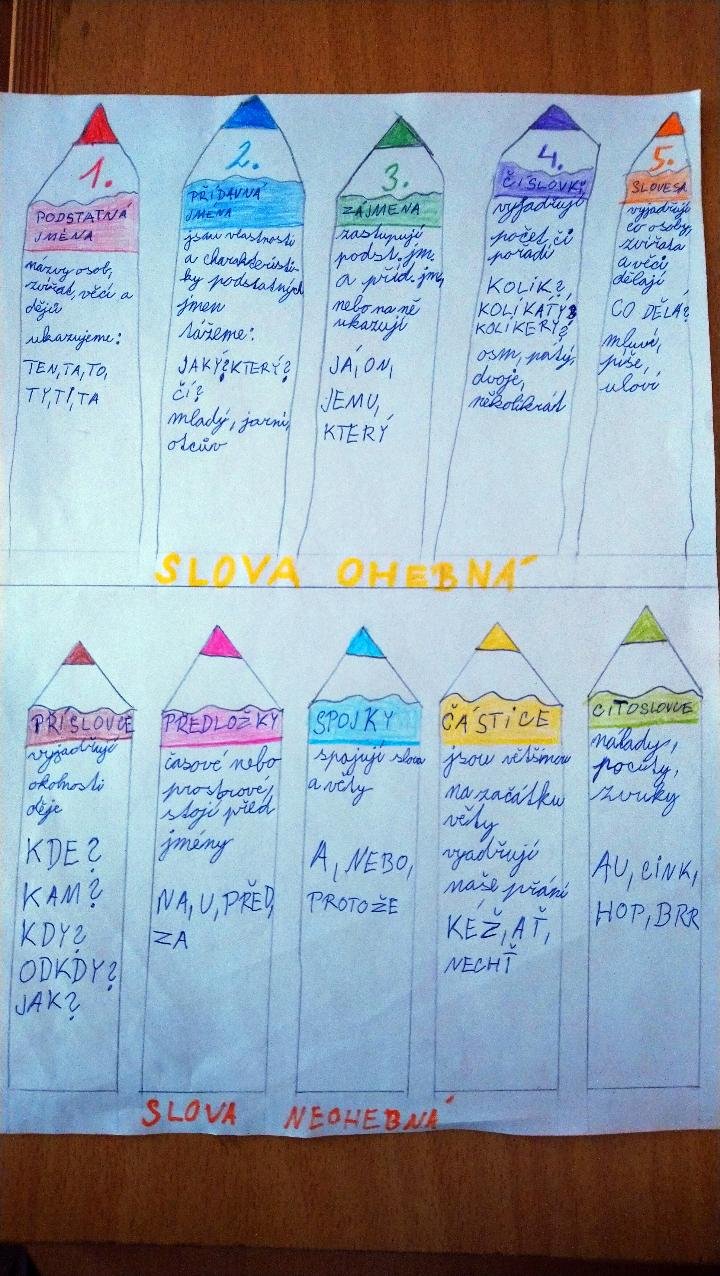 1.
PODSTATNÁ
JMÉNA
názvy osob,
zvířat, věcí a
dějů
ukazujeme:
TEN, TA, TO,
TY, TI, TA
2.
PŘÍDAVNÁ
JMÉNA
jsou vlastnosti
a charakteristi-
ky podstatných
jmen
tážeme:
JAKÝ? KTERÝ?
ČÍ?
mladý, jarní,
otcův
3.
ZÁJMENA
zastupují
podst. jm.
a příd. jm,
nebo na ně
ukazují
JÁ, ON,
JEMU,
KTERÝ
4.
ČÍSLOVKY
vyjadřují
počet, či
pořadí
KOLIK?,
KOLIKÁTÝ?
KOLIKERÝ?
osm, pátý,
dvoje,
několikrát
5.
SLOVESA
vyjadřují
co osoby,
zvířata
a věci
dělají
CO DĚLÁ?
mluví,
píše,
uloví
SLOVA OHEBNÁ
PŘÍSLOVCE
vyjadřují
okolnosti
děje
KDE?
KAM?
KDY?
ODKDY?
JAK?
PŘEDLOŽKY
časové nebo
prostrové,
stojí před
jmény
NA, U, PŘED,
ZA
SPOJKY
spojují slova
a věty
A, NEBO,
PROTOŽE
ČÁSTICE
jsou většinou
na začátku
věty
vyadřují
naše přání
KÉŽ, AŤ,
NECHŤ
CITOSLOVCE
nálady,
pocity,
zvuky
AU, CINK,
HOP, BRR
SLOVA NEOHEBNÁ